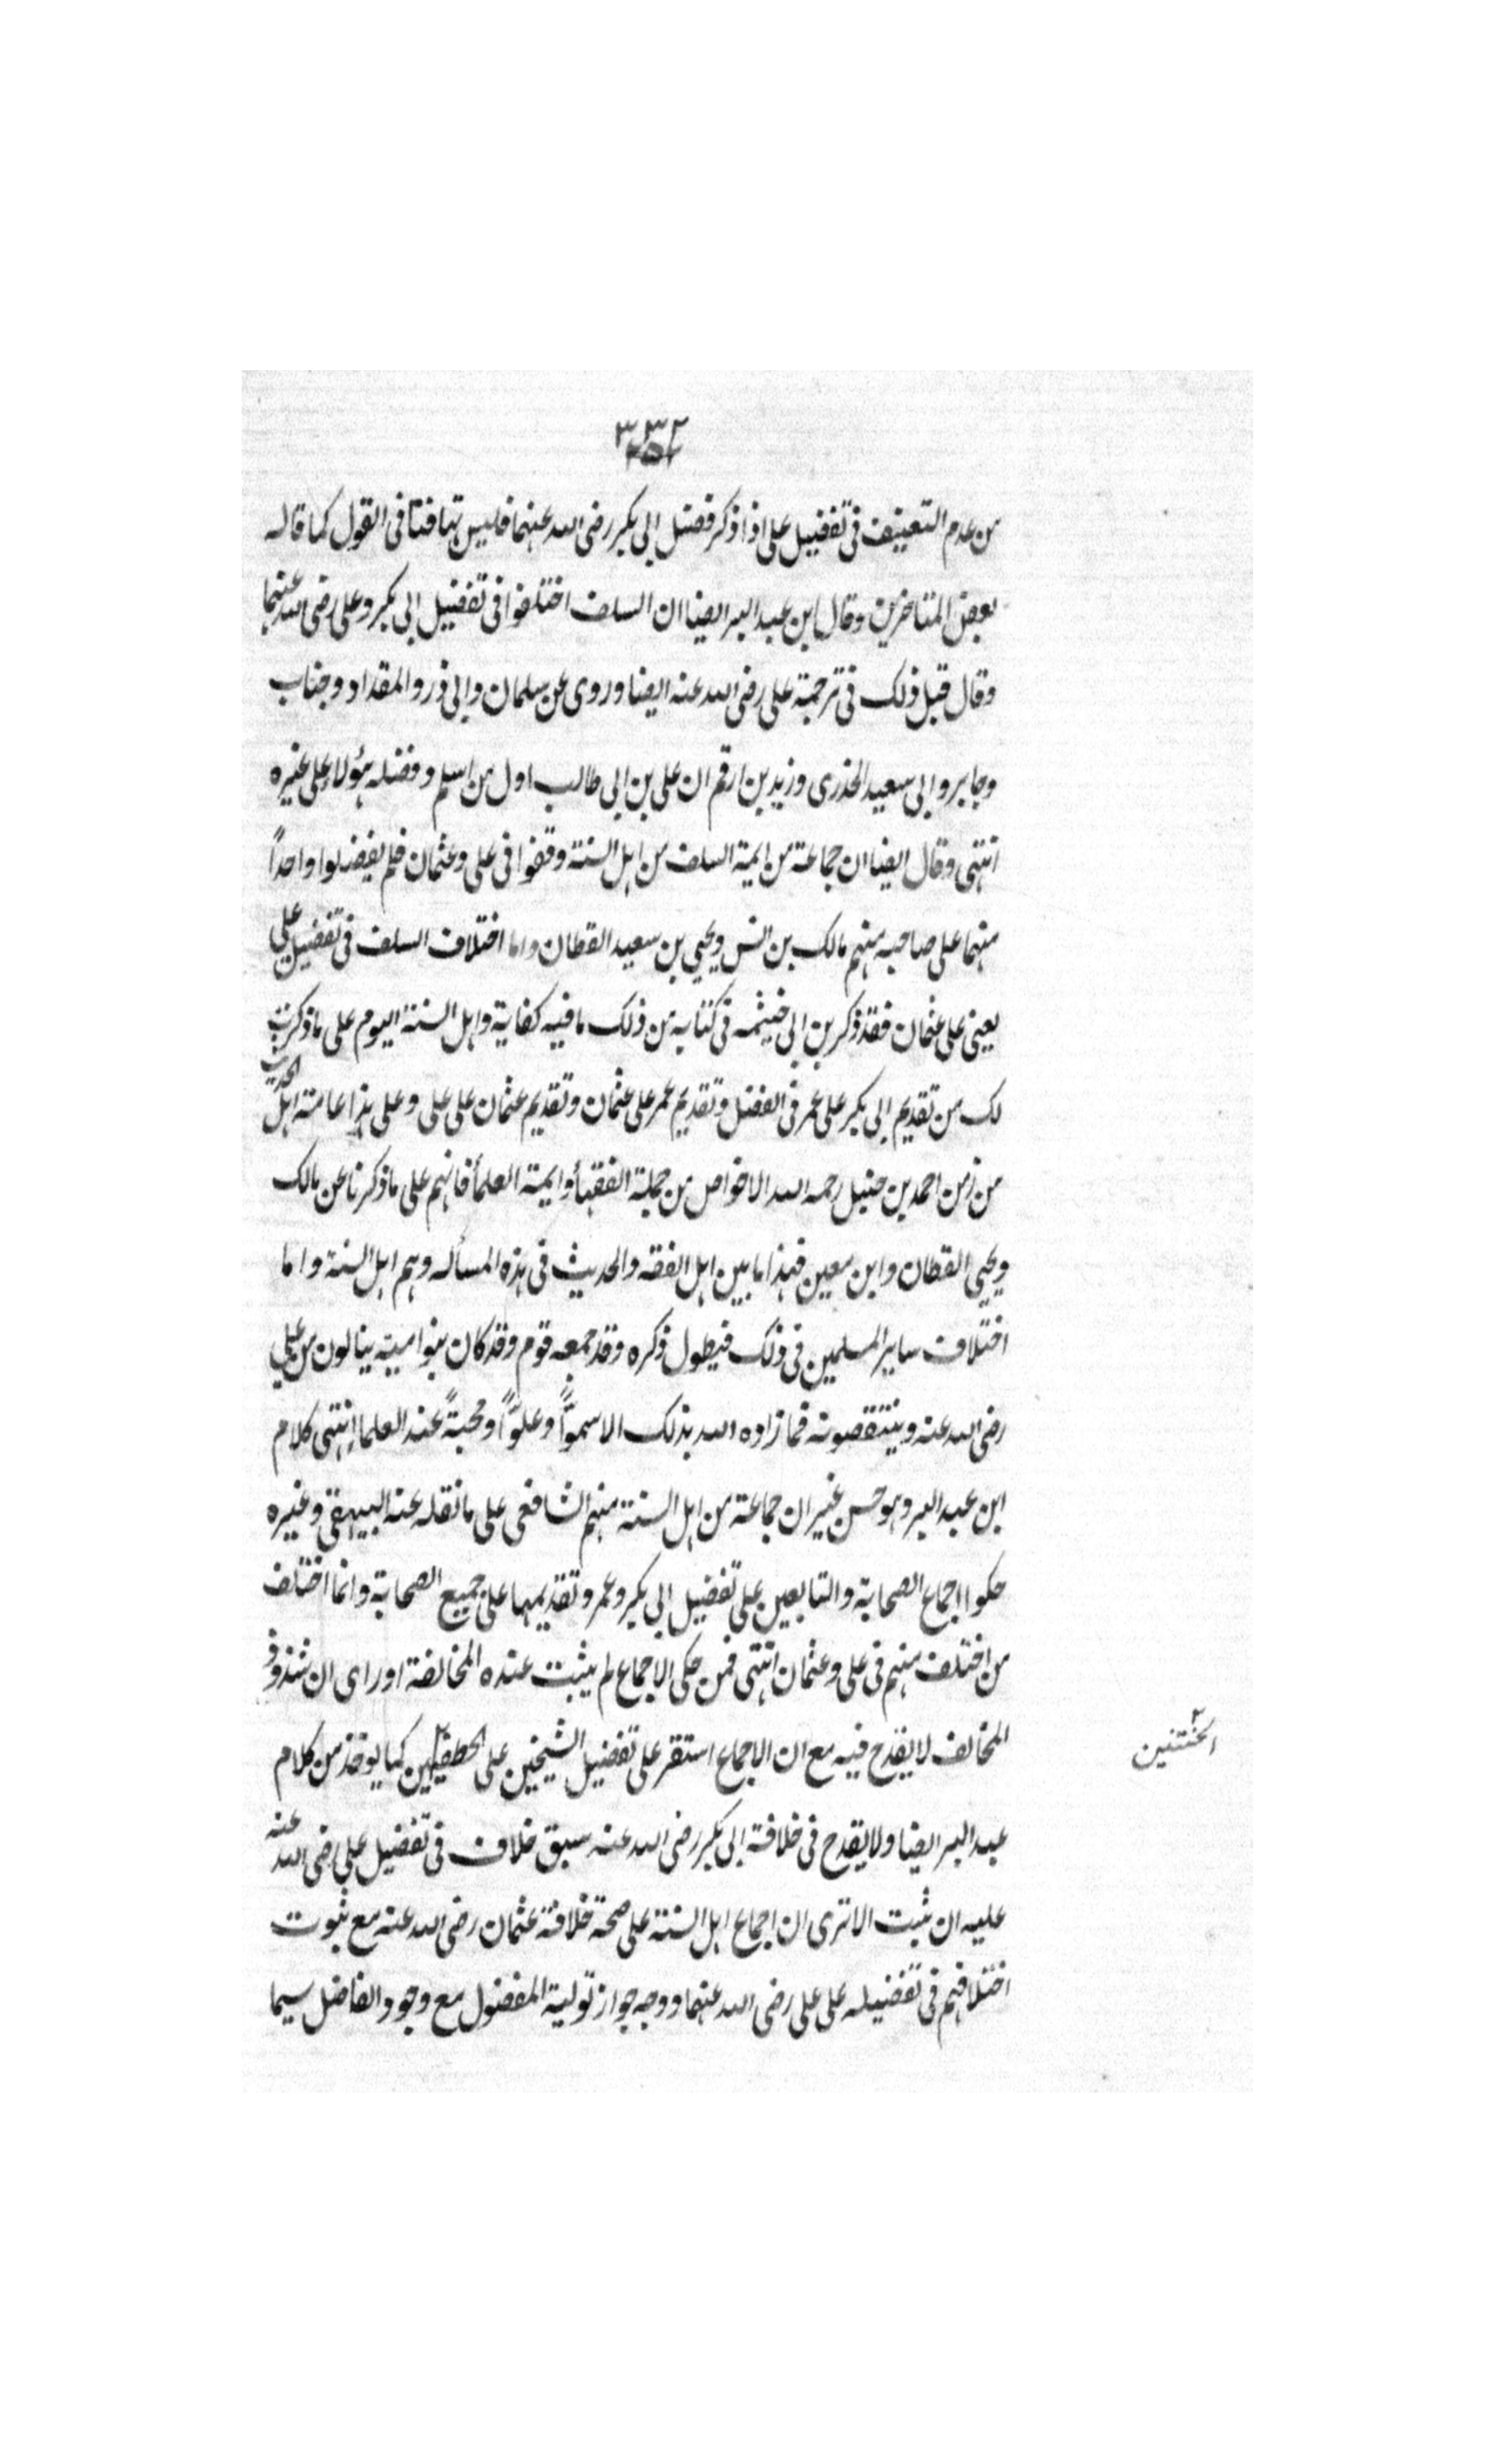 من عدم التعنيف فى تفضيل على اذا ذكر فضل ابى بكر رضى الله عنهما فليس تهافتا فى القول كما قاله
بعض المتاخرين وقال ابن عبد البر ايضا ان السلف اختلفوا فى تفضيل ابى بكر وعلى رضى الله عنهما
وقال قبل ذلك فى ترجمة على رضى الله عنه ايضا وروى عن سلمان وابى ذر والمقداد وجناب
وجابر وابى سعيد الخدرى وزيد بن ارقم ان على بن ابى طالب اول من اسلم وفضله هؤلاء على غيره
انتهى وقال ايضا ان جماعة من ايمة السلف من اهل السنة وقفوا فى على وعثمان فلم يفضلوا واحداً
منهما على صاحبه منهم مالك بن انس ويحيى بن سعيد القطان واما اختلاف السلف فى تفضيل على
يعنى على عثمان فقد ذكر بن ابى خيثمه فى كتابه من ذلك ما فيه كفاية واهل السنة اليوم على ما ذكرت
لك من تقديم ابى بكر على عمر فى الفضل وتقديم عمر على عثمان وتقديم عثمان على على وعلى هذا عامة اهل الحديث
من زمن احمد بن حنبل رحمه الله الا خواص من جملة الفقهأ وايمة العلمأ فانهم على ما ذكرنا عن مالك
ويحيى القطان وابن معين فهذا ما بين اهل الفقه والحديث فى هذه المسأله وهم اهل السنة واما
اختلاف ساير المسلمين فى ذلك فيطول ذكره وقد جمعه قوم وقد كان بنوا امية ينالون من على
رضى الله عنه وينتقصونه فما زاده الله بذلك الا سموّاً وعلوّاً ومحبةً عند العلماء انتهى كلام
ابن عبد البر وهو حسن غير ان جماعة من اهل السنة منهم الشافعى على ما نقله عنه البيهقى وغيره
حكوا اجماع الصحابة والتابعين على تفضيل ابى بكر وعمر وتقديمهما على جميع الصحابة وانما اختلف
من اختلف منهم فى على وعثمان انتهى فمن حكى الاجماع لم يثبت عنده المخالفة او راى ان شذوذ
المخالف لا يقدح فيه مع ان الاجماع استقر على تفضيل الشيخين على كما يوخذ من كلام
الختنين
عبد البر ايضا ولا يقدح فى خلافة ابى بكر رضى الله عنه سبق خلاف فى تفضيل على رضى الله عنه
عليه ان ثبت الا ترى ان اجماع اهل السنة على صحة خلافة عثمان رضى الله عنه مع ثبوت
اختلافهم فى تفضيله على على رضى الله عنهما ووجه جواز تولية المفضول مع وجود الفاضل سيما